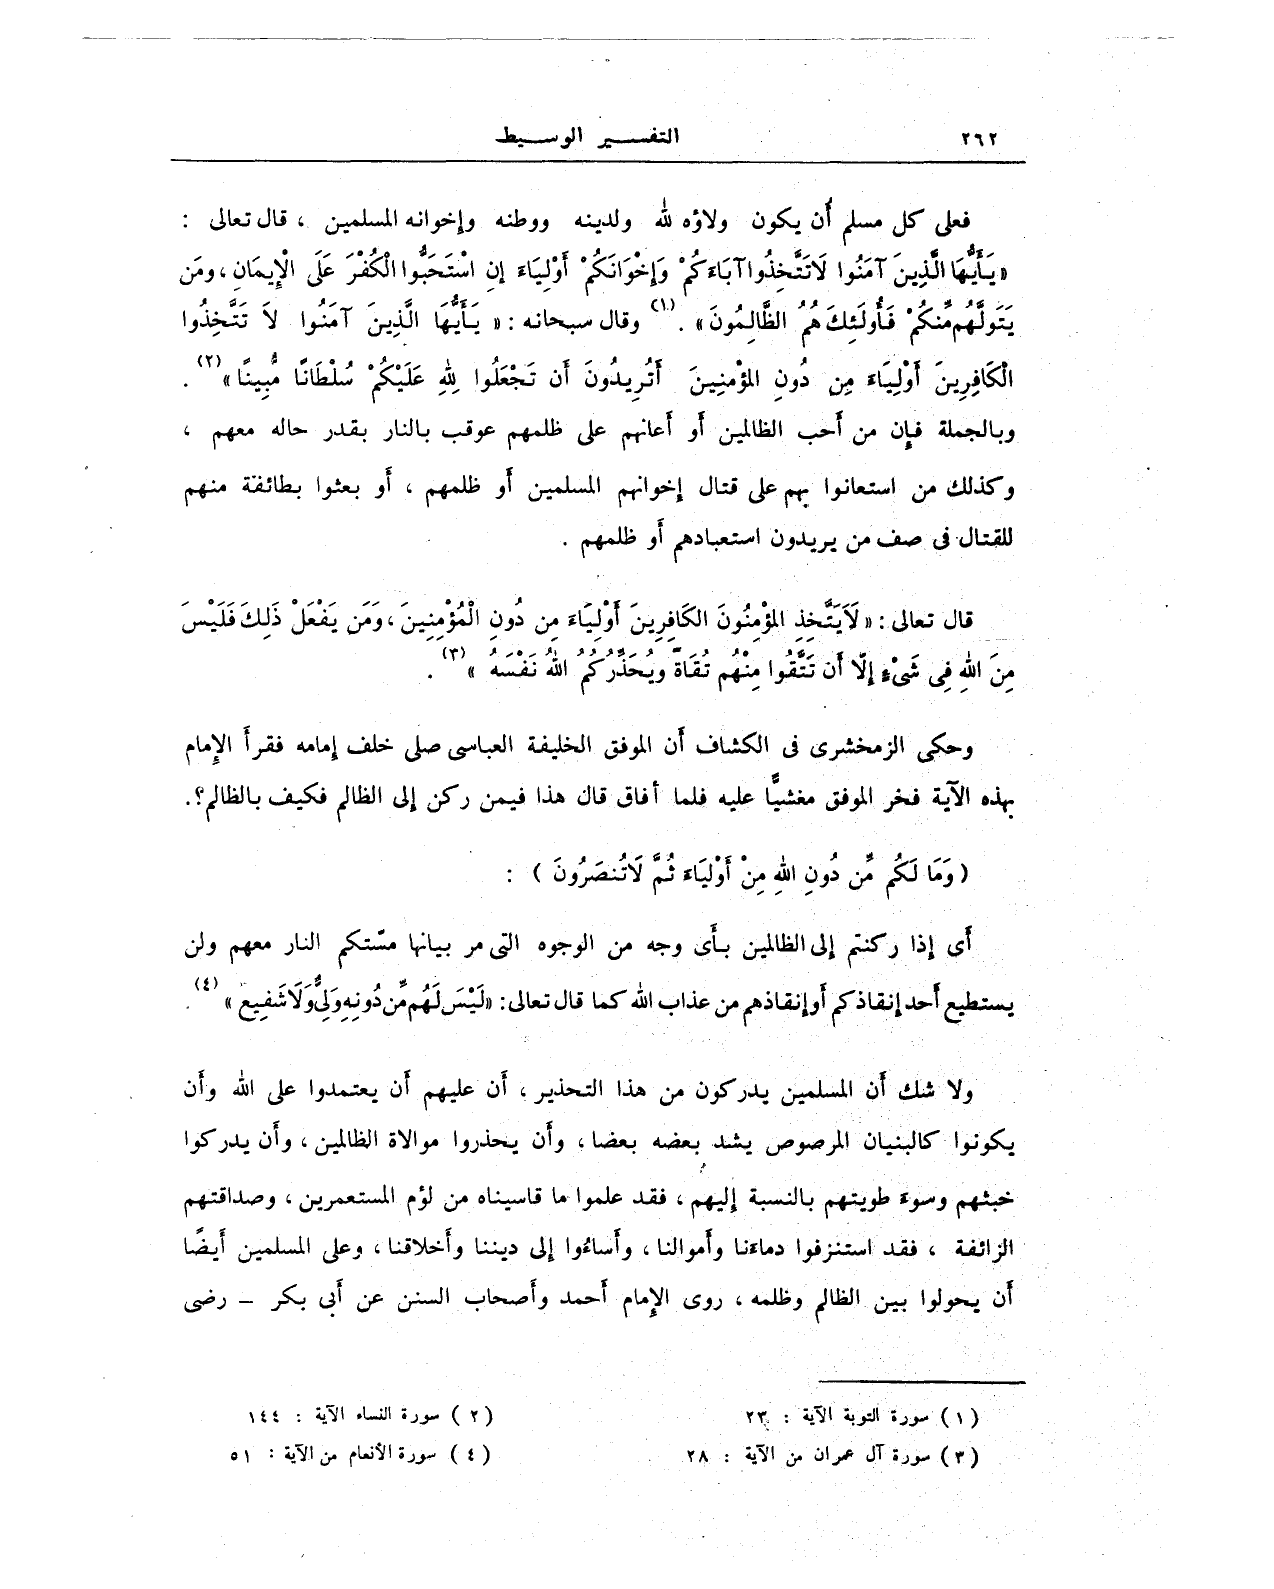 ٢٦٢
التفسير الوسيط
فعلى كل مسلم أن يكون ولاؤه لله ولدينه ووطنه وإخوانه المسلمين ، قال تعالى :
« يَـأَيُّهَا الَّذِينَ آمَنُوا لَاتَتَّخِذُوا آبَاءَكُمْ وَإِخْوَانَكُمْ أَوْلِيَاءَ إِنِ اسْتَحَبُّوا الْكُفْرَ عَلَى الْإِيمَانِ ، ومَن
يَتَولَّهُم مِّنكُمْ فَأُولَئِكَ هُمُ الظَّالِمُونَ » . (١) وقال سبحانه : « يَـأَيُّهَا الَّذِينَ آمَنُوا لَا تَتَّخِذُوا
الْكَافِرِينَ أَوْلِيَاءَ مِن دُونِ المُؤْمِنِينَ أَتُرِيدُونَ أَن تَجْعَلُوا لِلهِ عَلَيْكُمْ سُلْطَانًا مُّبِينًا » (٢) .
وبالجملة فإن من أحب الظالمين أو أعانهم على ظلمهم عوقب بالنار بقدر حاله معهم ،
وكذلك من استعانوا بهم على قتال إخوانهم المسلمين أو ظلمهم ، أو بعثوا بطائفة منهم
للقتال فى صف من يريدون استعبادهم أو ظلمهم .
قال تعالى : « لَايَتَّخِذِ المُؤْمِنُونَ الكَافِرِينَ أَوْلِيَاءَ مِن دُونِ الْمُؤْمِنِينَ ، وَمَن يَفْعَلْ ذَلِكَ فَلَيْسَ
مِنَ اللهِ فِى شَىْءٍ إِلَّا أَن تَتَّقُوا مِنْهُم تُقَاةً ويُحَذِّرُكُمُ اللهُ نَفْسَهُ » (٣) .
وحكى الزمخشرى فى الكشاف أن الموفق الخليفة العباسى صلى خلف إمامه فقرأ الإمام
بهذه الآية فخر الموفق مغشيًّا عليه فلما أفاق قال هذا فيمن ركن إلى الظالم فكيف بالظالم؟.
( وَمَا لَكُم مِّن دُونِ اللهِ مِنْ أَوْلِيَاءَ ثُمَّ لَاتُنصَرُونَ ) :
أى إذا ركنتم إلى الظالمين بأى وجه من الوجوه التى مر بيانها مسّتكم النار معهم ولن
يستطيع أحد إنقاذكم أو إنقاذهم من عذاب الله كما قال تعالى : « لَيْسَ لَهُم مِّن دُونِهِ وَلِىٌّ وَلَا شَفِيعٌ » (٤) .
ولا شك أن المسلمين يدركون من هذا التحذير ، أن عليهم أن يعتمدوا على الله وأن
يكونوا كالبنيان المرصوص يشد بعضه بعضا ، وأن يحذروا موالاة الظالمين ، وأن يدركوا
خبثهم وسوء طويتهم بالنسبة إليهم ، فقد علموا ما قاسيناه من لؤم المستعمرين ، وصداقتهم
الزائفة ، فقد استنزفوا دماءنا وأموالنا ، وأساءُوا إلى ديننا وأخلاقنا ، وعلى المسلمين أيضًا
أن يحولوا بين الظالم وظلمه ، روى الإمام أحمد وأصحاب السنن عن أبى بكر – رضى
(١) سورة التوبة الآية : ٢٣
(٢) سورة النساء الآية : ١٤٤
(٣) سورة آل عمران من الآية : ٢٨
(٤) سورة الأنعام من الآية : ٥١